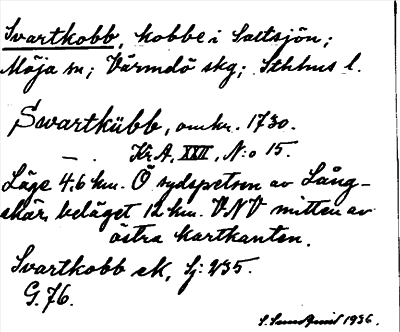 Svartkobb, kobbe i Saltsjön;
Möja sn; Värmdö skg; Sthlms l.
Swartkübb, omkr. 1730.
— Kr. A. XXII, N:o 15.
Läge 4,6 km. Ö sydspetsen av Lång-
skär, beläget 12 km. VNV mitten av
östra kartkanten.
Svartkobb ek, Sj: 235.
G. 76.
1936.